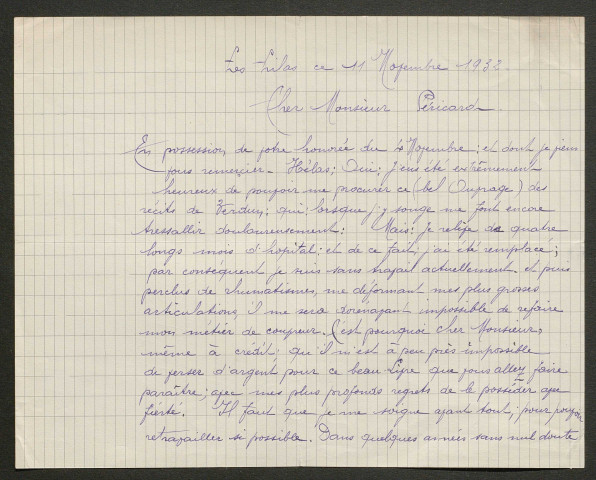 Les Lilas ce 11 Novembre 1932.
Cher Monsieur Péricard.
En possession, de votre honorée du 4 Novembre; et dont je viens
vous remercier - Hélas; Oui; j'eus été extrêmement
heureux de pouvoir me procurer ce (bel Ouvrage) des
récits de Verdun; qui; lorsque j'y songe me font encore
tressaillir douloureusement: Mais: je relève de quatre
longs mois d'hopital; et de ce fait, j'ai été remplacé;
par conséquent je suis sans travail actuellement. et puis
perclus de rhumatismes, me déformant mes plus grosses
articulations, il me sera dorénavant impossible de refaire
mon métier de coupeur. C'est pourquoi cher Monsieur,
même à crédit; qu'il m'est à peu près impossible
de verser d'argent pour ce beau Livre que vous allez faire
paraître; avec mes plus profonds regrets de le posséder avec
fierté. Il faut que je me soigne avant tout; pour pouvoir
retravailler si possible. Dans quelques années sans nul doute